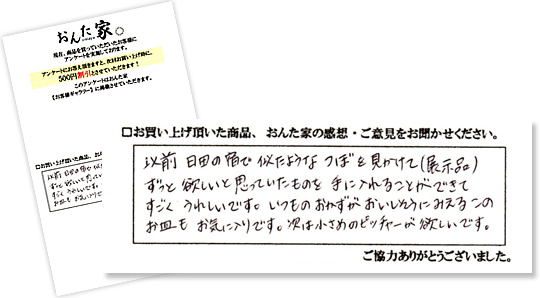 おんた家
現在、商品を買っていただいたお客様に
アンケートを実施しております。
アンケートにお答え頂きますと、次回お買い上げ時に、
500円割引とさせていただきます!
このアンケートはおんた家
【お客様ギャラリー】に掲載させていただきます。
□お買い上げ頂いた商品、お
以前 日田の宿で似た
ずっと欲しいと思ってい
すごく うれしいです。
お皿も お気に入りです
□お買い上げ頂いた商品、おんた家の感想・ご意見をお聞かせください。
以前 日田の宿で似たような つぼを見かけて(展示品)
ずっと欲しいと思っていたものを 手に入れることができて
すごく うれしいです。いつものおかずが おいしそうにみえる この
お皿も お気に入りです。次は小さめのピッチャーが 欲しいです。
ご協力ありがとうございました。